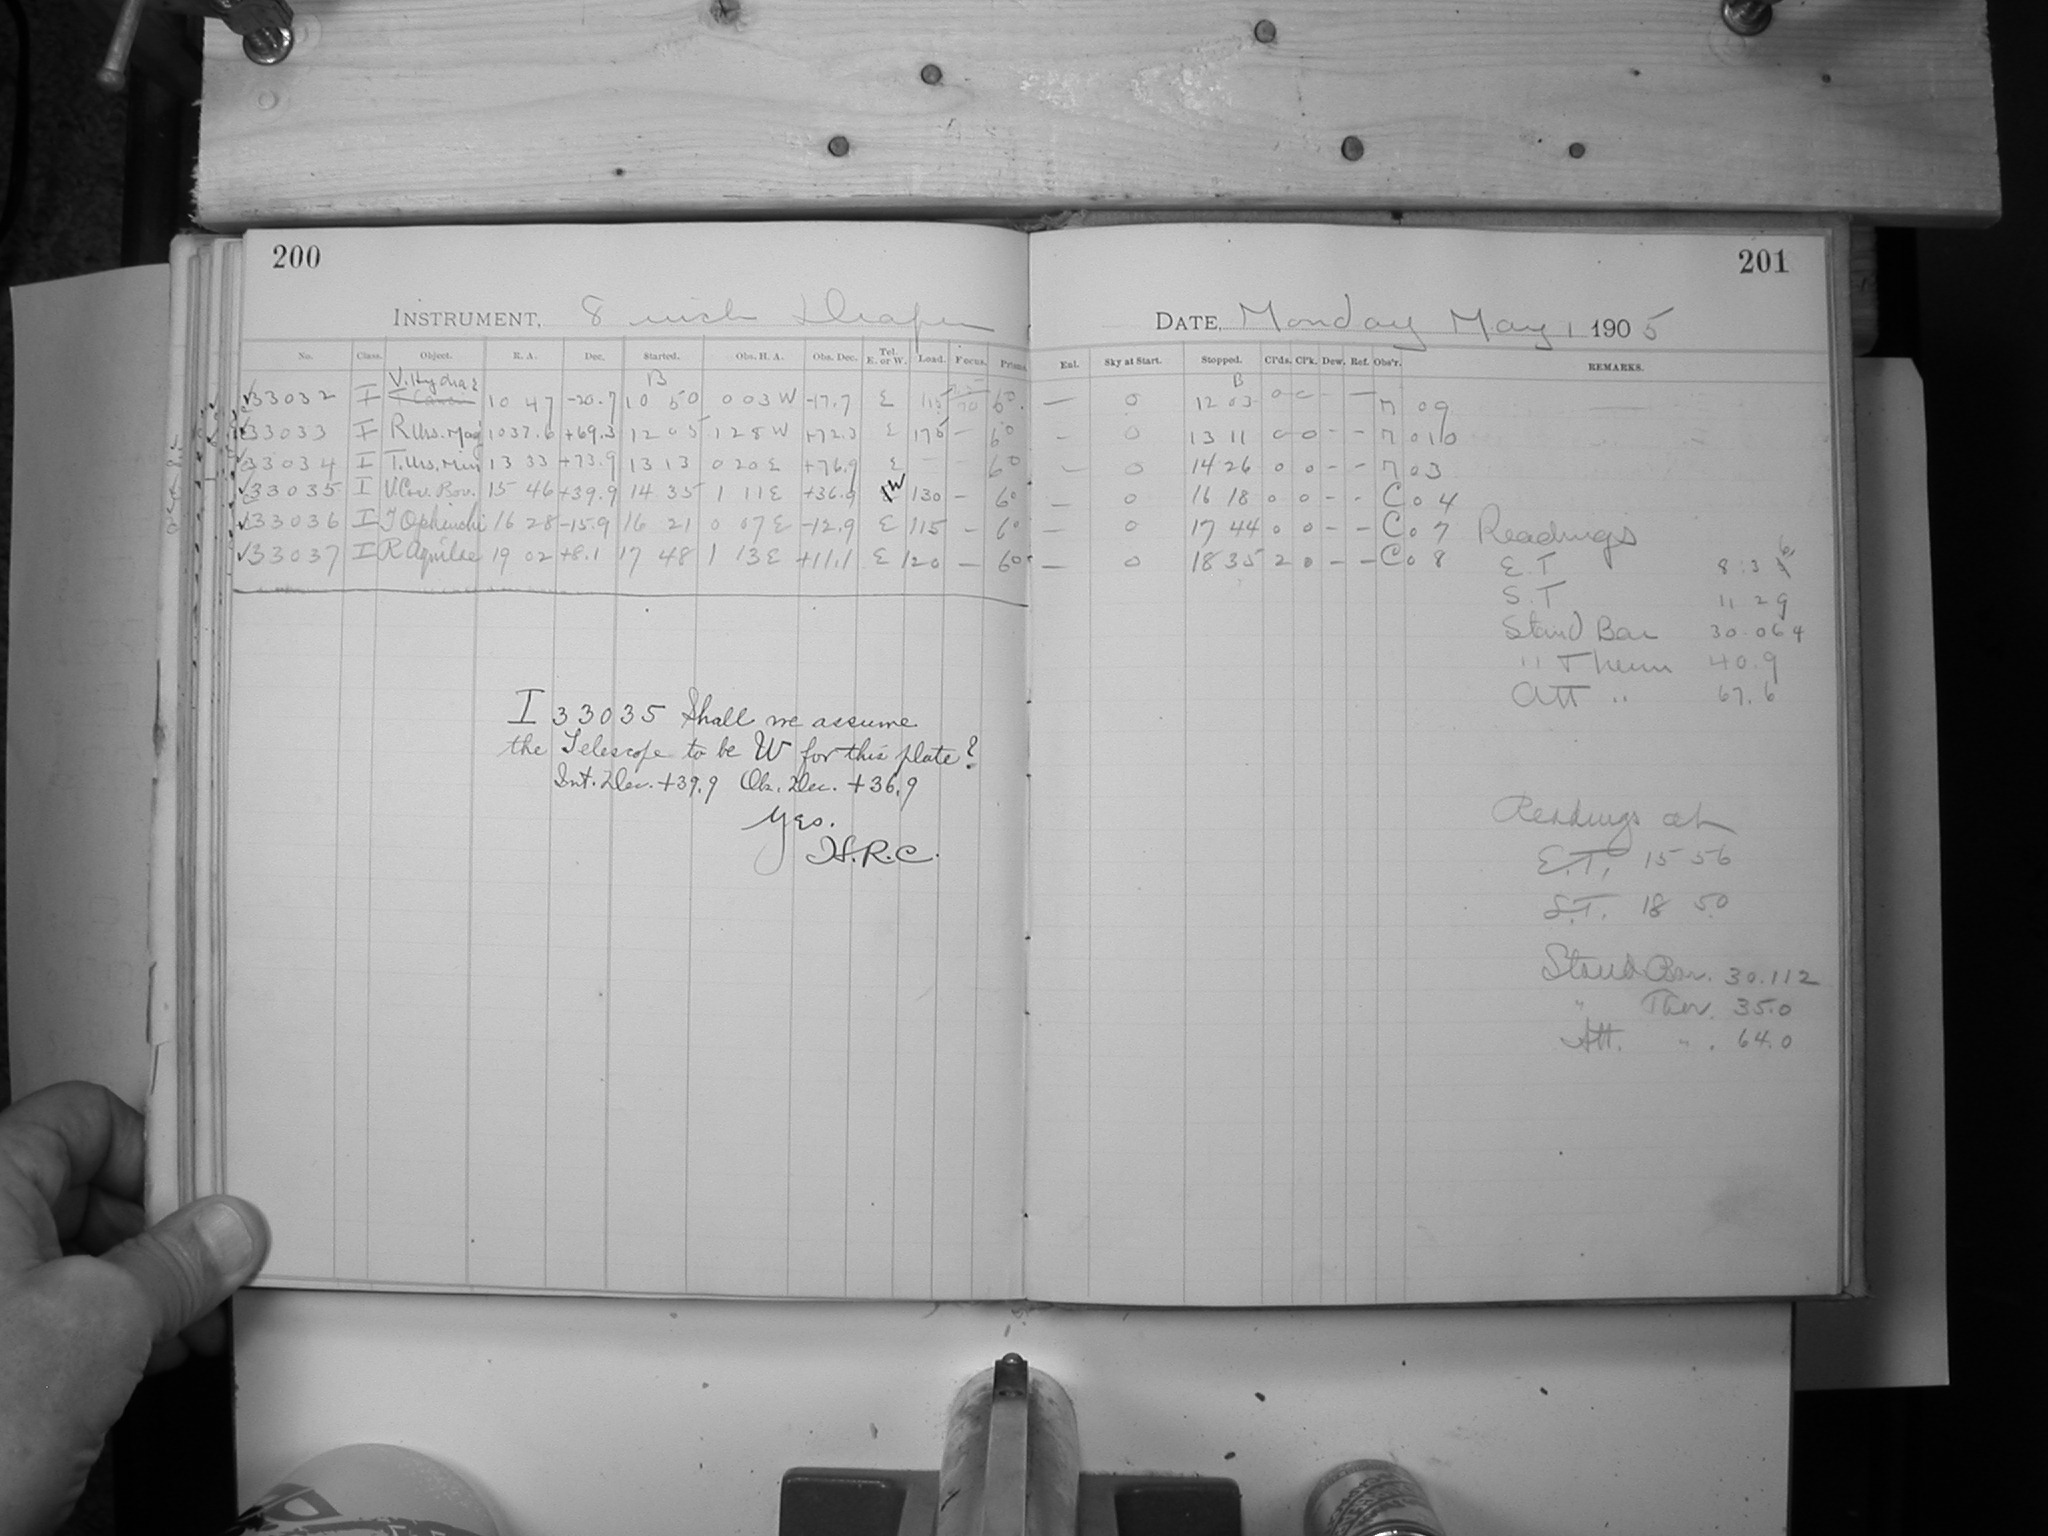 200
INSTRUMENT, 8 inch Draper
No. Class. Object. R. A. Dec. Started. Obs. H. A. Obs. Dec. Tel. E. or W. Load. Focus. Prisms.
V. Hydrae B
33032 I 10 47 -20.7 10 50 0 03 W -17.7 E 115 70 60
33033 I R Urs. Maj 10 37.6 +69.3 12 05 1 28 W +72.3 E 175 – 60
33034 I T. Urs. Min 13 33 +73.9 13 13 0 20 E +76.9 E – – 60
33035 I V. Cor. Bor. 15 46 +39.9 14 35 1 11 E +36.9 W 130 – 60
33036 I T Ophiuchi 16 28 -15.9 16 21 0 07 E -12.9 E 115 – 60
33037 I R Aquilae 19 02 +8.1 17 48 1 13 E +11.1 E 120 – 60
I 33035 Shall we assume
the Telescope to be W for this plate?
Int. Dec. +39.9 Ob. Dec. +36.9
Yes.
H.R.C.
201
DATE, Monday May 1 1905
Enl. Sky at Start. Stopped. Cl'ds. Cl'k. Dew. Ref. Obs'r. REMARKS.
B
— 0 12 03 0 0 – –
– 0 13 11 0 0 – –
– 0 14 26 0 0 – –
– 0 16 18 0 0 – – C 0 4
– 0 17 44 0 0 – – C 0 7
– 0 18 35 2 0 – – C 0 8
Readings
E.T 8:36
S.T 11 29
Stand Bar 30.064
" Therm 40.9
Att " 67.6
Readings at
E.T. 15 56
S.T. 18 50
Stand Bar. 30.112
" Ther. 35.0
Att. " . 64.0